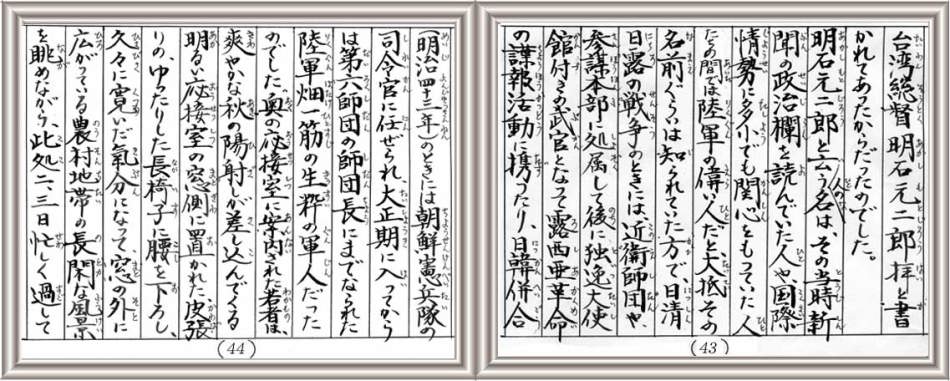 台湾総督明石元二郎拝と書
かれてあったからだったのでした。
明石元二郎と云う人の名は、その当時新
聞の政治欄を読んでいた人や国際
情勢に多少でも関心をもっていた人
たちの間では陸軍の偉い人だと大抵その
名前ぐらいは知られていた方で日清
日露の戦争のときには、近衛師団や
参謀本部に処属して後に独逸大使
館付きの武官となって露西亜革命
の諜報活動に携ったり、日韓併合
(43)
(明治四十三年)のときには朝鮮憲兵隊の
司令官に任ぜられ、大正期に入ってから
は第六師団の師団長にまでなられた
陸軍畑一筋の生粋の軍人だった
のでした。奥の応接室に案内された若者は、
爽やかな秋の陽射しが差し込んでくる
明るい応接室の窓側に置かれた皮張
りの、ゆったりした長椅子に腰を下ろし、
久々に寛いだ氣分になって、窓の外に
広がっている農村地帯の長閑な風景
を眺めながら、此処二、三日忙しく過して
(44)